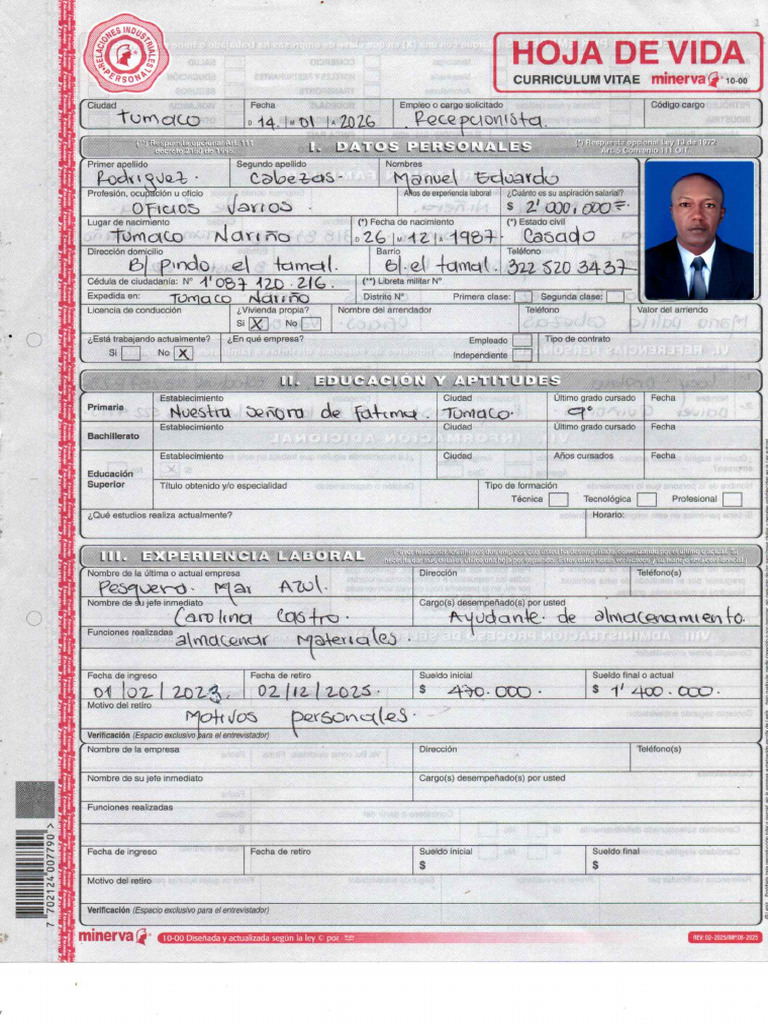 RELACIONES INDUSTRIALES
PERSONAL
1
HOJA DE VIDA
CURRICULUM VITAE minerva 10-00
Ciudad Fecha Empleo o cargo solicitado Código cargo
Tumaco D 14 M 01 A 2026 Recepcionista.
(**) Respuesta opcional Art. 111 decreto 2150 de 1995. I. DATOS PERSONALES (*) Respuesta opcional Ley 13 de 1972 Art. 5 Convenio 111 OIT.
Primer apellido Segundo apellido Nombres
Rodriguez. Cabezas. Manuel Eduardo
Profesión, ocupación u oficio Años de experiencia laboral ¿Cuánto es su aspiración salarial?
Oficios Varios $ 2'000,000=
Lugar de nacimiento (*) Fecha de nacimiento (*) Estado civil
Tumaco Nariño D 26 M 12 A 1987 Casado
Dirección domicilio Barrio Teléfono
B/ pindo el tamal. B/. el tamal. 322 520 3437
Cédula de ciudadanía: N° 1'087 120.216. (**) Libreta militar N°
Expedida en: Tumaco Nariño Distrito N° Primera clase: Segunda clase:
Licencia de conducción ¿Vivienda propia? Nombre del arrendador Teléfono Valor del arriendo
Si X No
¿Está trabajando actualmente? ¿En qué empresa? Empleado Tipo de contrato
Si No X Independiente
II. EDUCACIÓN Y APTITUDES
Primaria Establecimiento Ciudad Último grado cursado Fecha
Nuestra Señora de Fatima. Tumaco. 9°
Bachillerato Establecimiento Ciudad Último grado cursado Fecha
Educación Superior Establecimiento Ciudad Años cursados Fecha
Título obtenido y/o especialidad Tipo de formación
Técnica Tecnológica Profesional
¿Qué estudios realiza actualmente? Horario:
III. EXPERIENCIA LABORAL
Nombre de la última o actual empresa Dirección Teléfono(s)
Pesquera. Mar Azul.
Nombre de su jefe inmediato Cargo(s) desempeñado(s) por usted
Carolina Castro. Ayudante de almacenamiento.
Funciones realizadas
almacenar Materiales.
Fecha de ingreso Fecha de retiro Sueldo inicial Sueldo final o actual
01/02/2023. 02/12/2025. $ 470.000. $ 1'400.000.
Motivo del retiro
Motivos personales.
Verificación (Espacio exclusivo para el entrevistador)
Nombre de la empresa Dirección Teléfono(s)
Nombre de su jefe inmediato Cargo(s) desempeñado(s) por usted
Funciones realizadas
Fecha de ingreso Fecha de retiro Sueldo inicial Sueldo final
$ $
Motivo del retiro
Verificación (Espacio exclusivo para el entrevistador)
7 702124 007790 >
minerva 10-00 Diseñada y actualizada según la ley © por
REV. 02-2025/IMP.08-2025